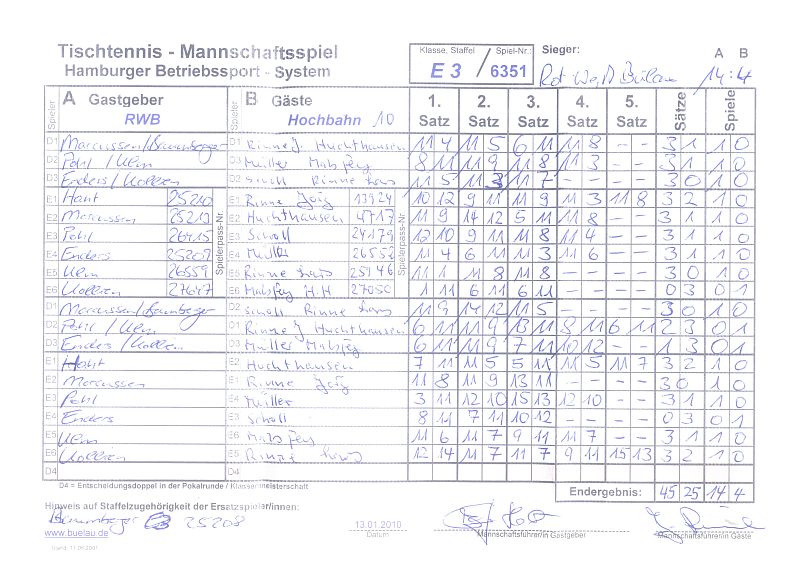 Tischtennis - Mannschaftsspiel
Hamburger Betriebssport - System
Klasse, Staffel Spiel-Nr.:
E 3 / 6351
Sieger:
A B
14:4
Spieler A Gastgeber
RWB
Spieler B Gäste
Hochbahn 10
1. Satz 2. Satz 3. Satz 4. Satz 5. Satz Sätze Spiele
D1 Marcussen/ D1 Rinne J. Huchthausen 11 4 11 5 6 11 11 8 - - 3 1 1 0
D2 Pehl /Ulm D3 Müller Malzfey 8 11 11 9 11 8 11 3 - - 3 1 1 0
D3 Enders/ D2 Scholl Rinne 11 5 11 3 11 7 - - - - 3 0 1 0
E1 Hant 25210 E1 Rinne Jörg 13924 10 12 9 11 11 9 11 3 11 8 3 2 1 0
E2 Marcussen 25219 E2 Huchthausen 4717 11 9 14 12 5 11 11 8 - - 3 1 1 0
E3 Pehl 26415 E3 Scholl 24179 12 10 9 11 11 8 11 4 - - 3 1 1 0
E4 Enders 25209 E4 Müller 26552 11 4 6 11 11 3 11 6 - - 3 1 1 0
E5 Ulm 26559 E5 Rinne 25146 11 1 11 8 11 8 - - - - 3 0 1 0
E6 27647 E6 H.H 27050 1 11 6 11 6 11 - - - - 0 3 0 1
Spielerpass-Nr. Spielerpass-Nr.
D1 Marcussen/ D2 Scholl Rinne 11 9 14 12 11 5 - - - - 3 0 1 0
D2 Pehl /Ulm D1 Rinne J Huchthausen 6 11 11 9 13 11 8 11 6 11 2 3 0 1
D3 Enders / D3 Müller 6 11 11 9 7 11 10 12 - - 1 3 0 1
E1 Hant E2 Huchthausen 7 11 11 5 5 11 11 5 11 7 3 2 1 0
E2 Marcussen E1 Rinne Jörg 11 8 11 9 13 11 - - - - 3 0 1 0
E3 Pehl E4 Müller 3 11 12 10 15 13 12 10 - - 3 1 1 0
E4 Enders E3 Scholl 8 11 7 11 10 12 - - - - 0 3 0 1
E5 Ulm E6 11 6 11 7 9 11 11 7 - - 3 1 1 0
E6 E5 Rinne 12 14 11 7 11 7 9 11 15 13 3 2 1 0
D4 D4
D4 = Entscheidungsdoppel in der Pokalrunde / Klassenmeisterschaft
Endergebnis: 45 25 14 4
Hinweis auf Staffelzugehörigkeit der Ersatzspieler/innen:
E3 25208
www.buelau.de
13.01.2010
Datum
Mannschaftsführer/in Gastgeber
Mannschaftsführer/in Gäste